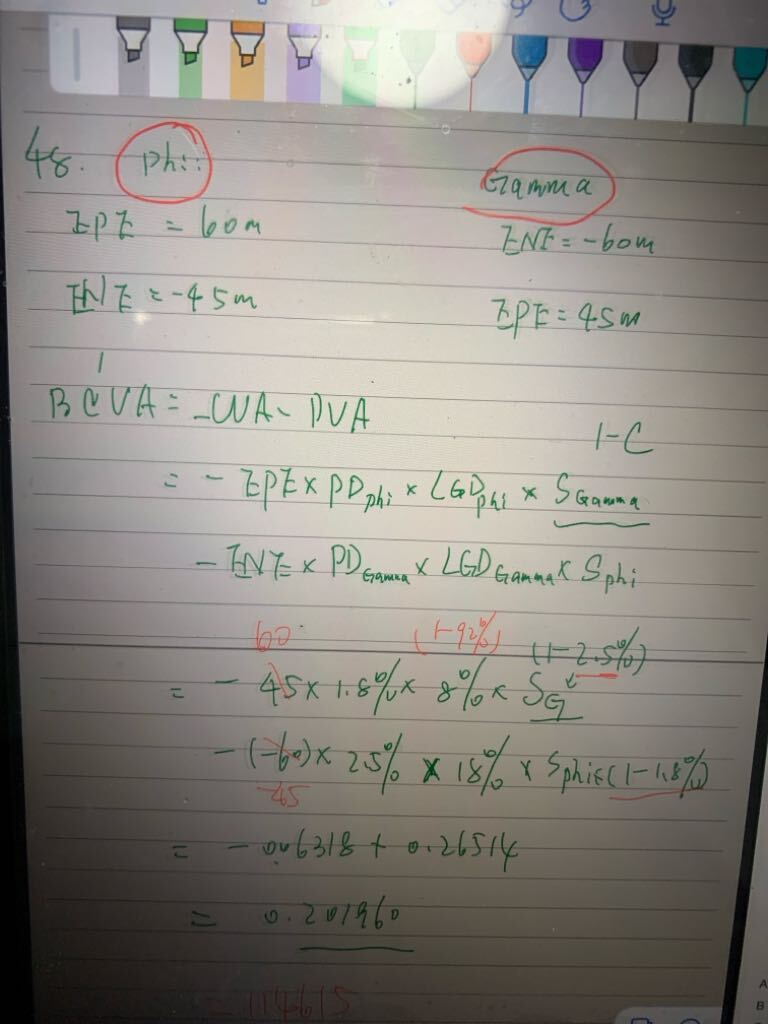 48. Phi: Gamma
EPE = 60m ENE = -60m
ENE = -45m EPE = 45m
BCVA = -CVA - DVA
1-C
= - EPE × PD phi × LGD phi × S Gamma
- ENE × PD Gamma × LGD Gamma × S phi
60 (1-92%) (1-2.5%)
= - 45 × 1.8% × 8% × SG
- (-60) × 2.5% × 18% × Sphi (1-1.8%)
45
= - 0.06318 + 0.26514
= 0.201960
114615
A
B